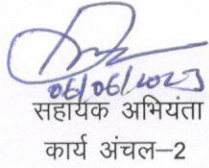 06/06/2023
सहायक अभियंता
कार्य अंचल–2